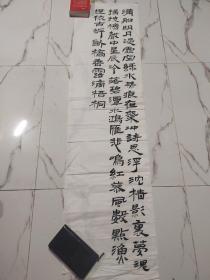 滿船明月浸虛空綠水無痕夜氣沖詩思浮沈檣影裏夢魂
搖曳櫓聲中星辰冷落碧潭水鴻雁悲鳴紅蓼風數點漁
燈依古岸斷橋垂露滴梧桐